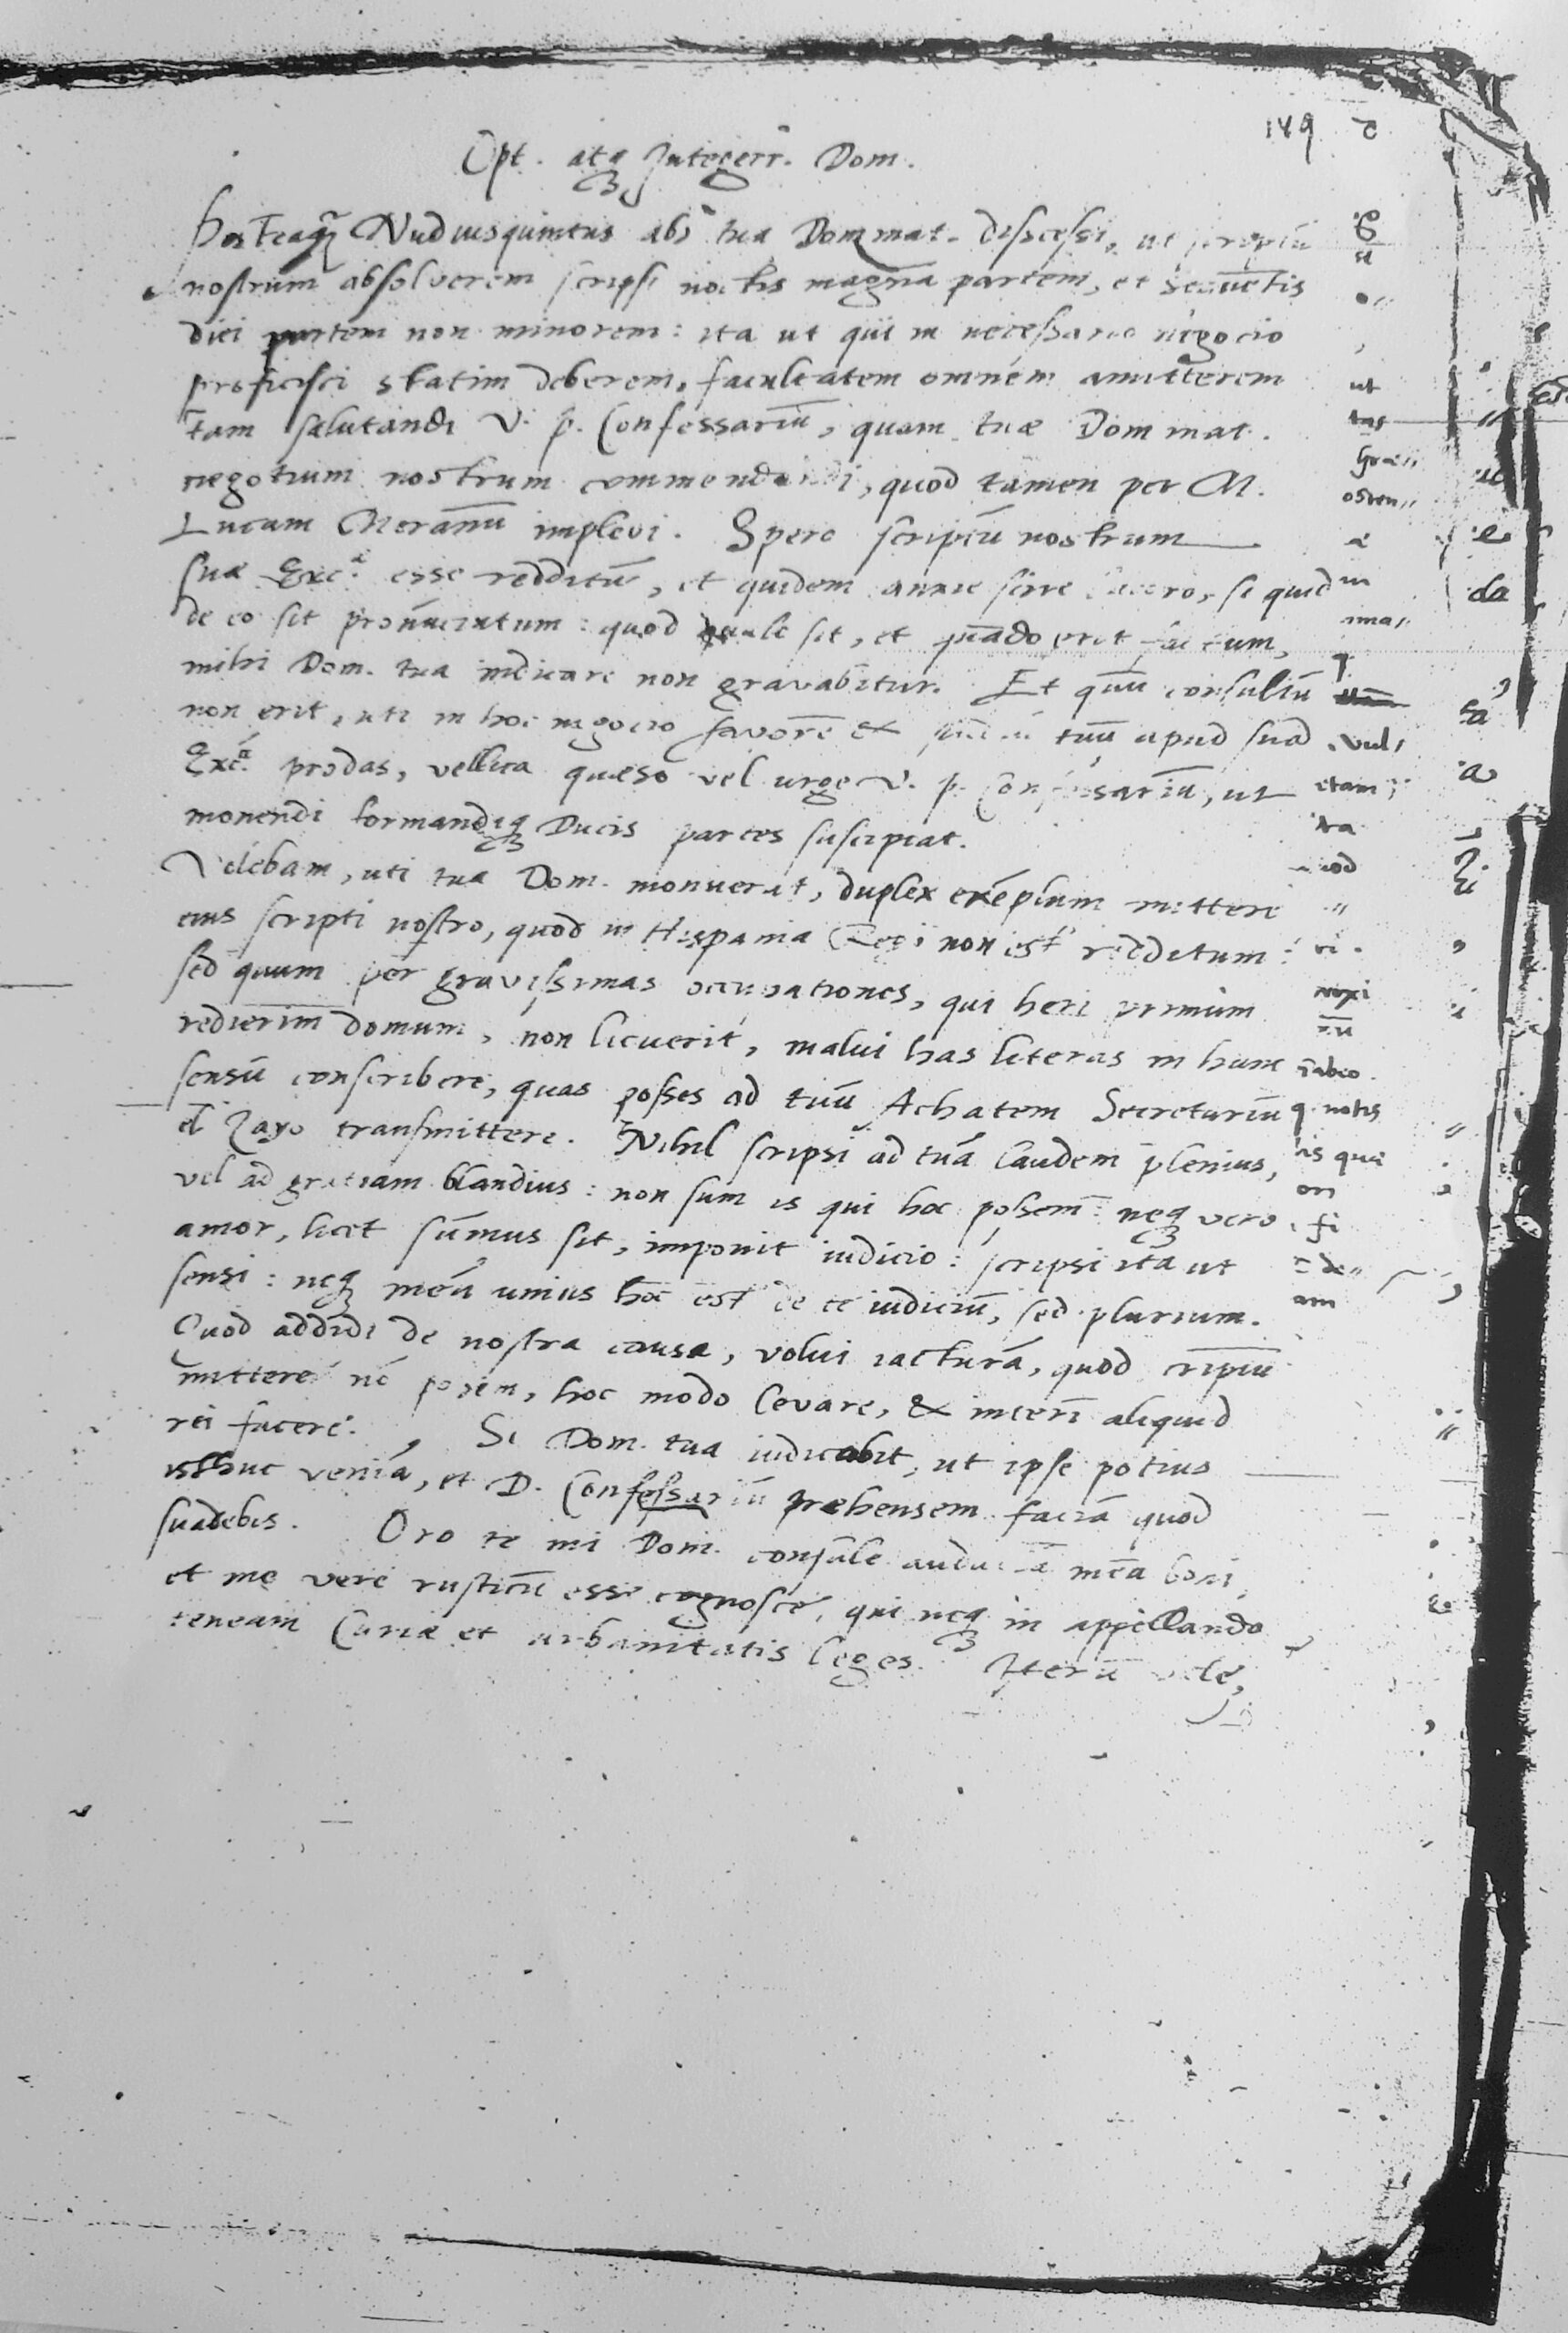 149
Opt. atq Integerr. Dom.
Posteaq̃ Nudiusquintus abs tua Dominat. discessi, ut scriptũ
nostrum absolverem scripsi noctis magnã partem, et sequẽtis
diei partem non minorem: ita ut qui in necessario negocio
proficisci statim deberem, facultatem omnem amitterem
tam salutandi V. p. Confessariũ, quam tuæ Dominat.
negotium nostrum commendandi, quod tamen per M.
Lucam Meranũ implevi. Spero scriptũ nostrum
suæ Exc.ᵃ esse redditũ, et quidem anxie scire, si quid
de eo sit pronũciatum: quod quale sit, et quãdo erit factum,
mihi Dom. tua indicare non gravabitur. Et quũ consultũ
non erit, uti in hoc negocio favorẽ & tuũ apud suã
Exc.ᵃ prodas, vellica quæso vel urge V. p. Confessariũ, ut
monendi formandiq Ducis partes suscipiat.
Volebam, uti tua Dom. monuerat, duplex exẽplum mittere
eius scripti nostro, quod in Hispania Regi non est redditum:
sed quum per gravissimas occupationes, qui heri primùm
redierim domum, non licuerit, malui has literas in hunc
sensũ conscribere, quas posses ad tuũ Achatem Secretariũ
đ Zayo transmittere. Nihil scripsi ad tuã laudem plenius,
vel ad gratiam blandius: non sum is qui hoc possem: neq vero
amor, licet sũmus sit, imponit iudicio: scripsi ita ut
sensi: neq meũ unius hoc est de te iudiciũ, sed plurium.
Quod addidi de nostra causa, volui iacturã, quod criptũ
mittere nõ possem, hoc modo levare, & interĩ aliquid
rei facere. Si Dom. tua iudicabit, ut ipse potius
isthuc veniã, et D. Confessariũ præhensem faciã quod
suadebis. Oro te mi Dom. consule audaciã meã boni,
et me vere rusticũ esse cognosce, qui neq in appellando
teneam Curiæ et urbanitatis leges. Iterũ vale,